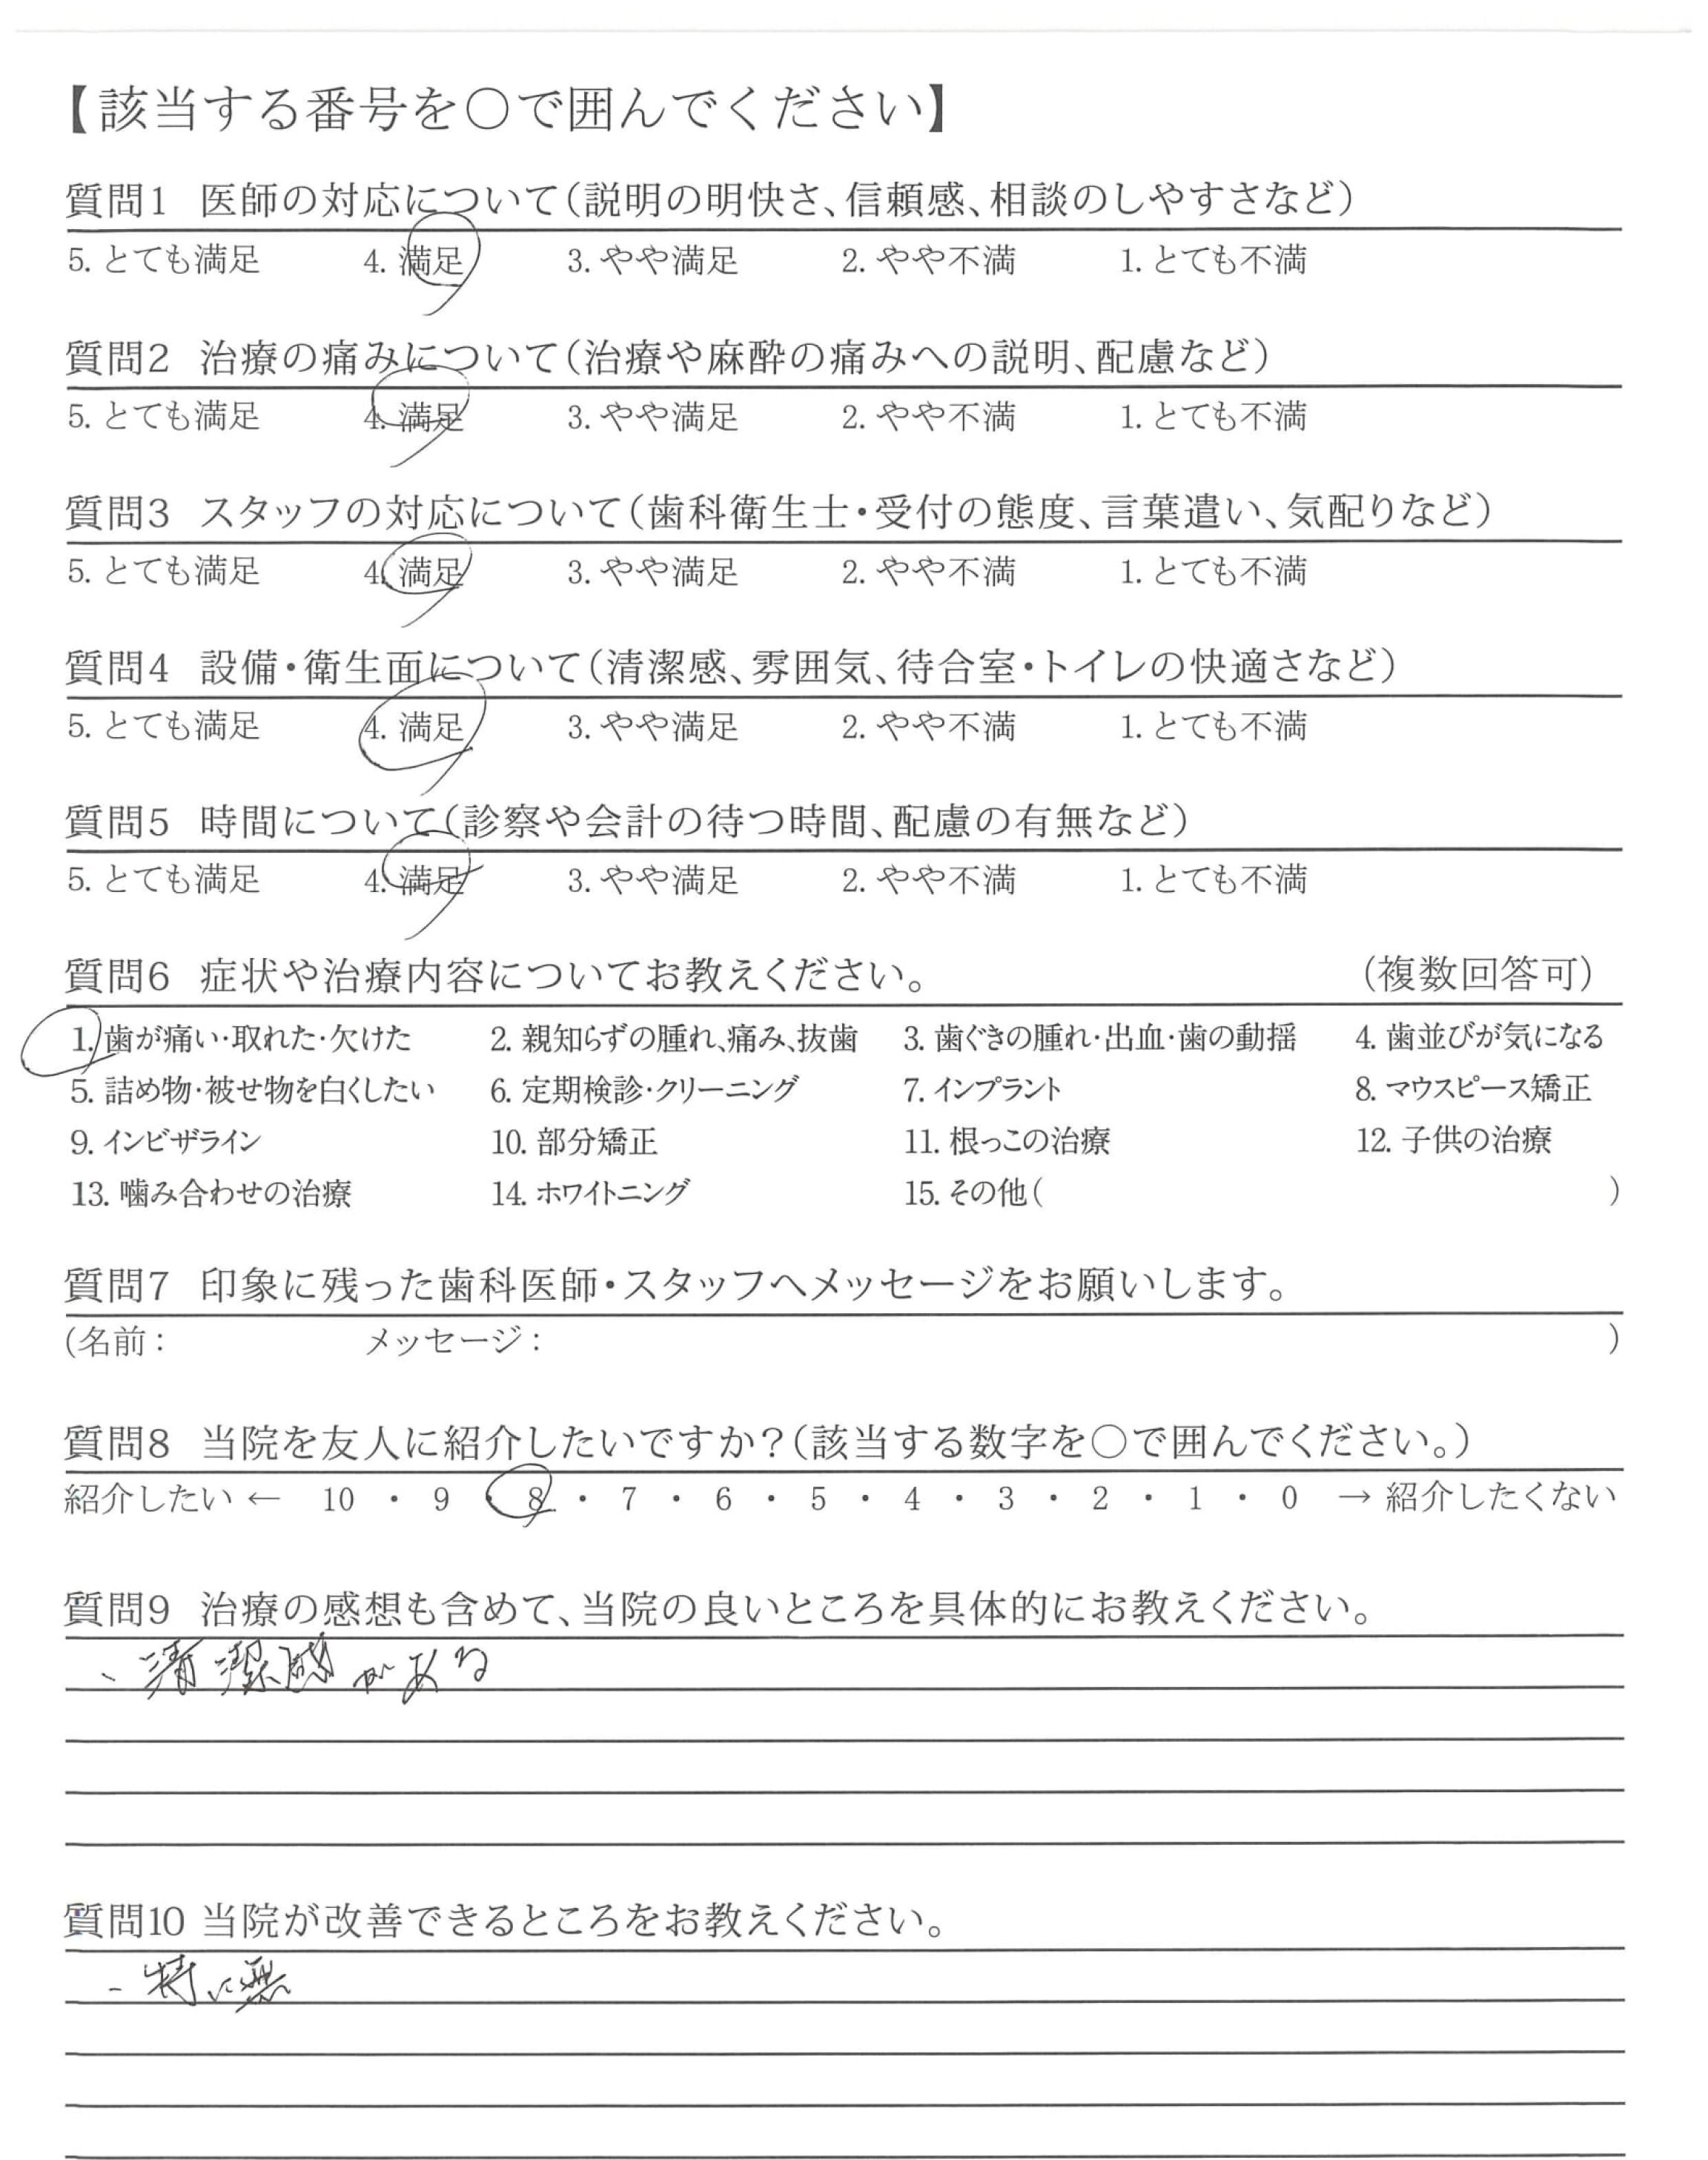 【該当する番号を○で囲んでください】
質問1 医師の対応について(説明の明快さ、信頼感、相談のしやすさなど)
5. とても満足 4. 満足 3. やや満足 2. やや不満 1. とても不満
質問2 治療の痛みについて(治療や麻酔の痛みへの説明、配慮など)
5. とても満足 4. 満足 3. やや満足 2. やや不満 1. とても不満
質問3 スタッフの対応について(歯科衛生士・受付の態度、言葉遣い、気配りなど)
5. とても満足 4. 満足 3. やや満足 2. やや不満 1. とても不満
質問4 設備・衛生面について(清潔感、雰囲気、待合室・トイレの快適さなど)
5. とても満足 4. 満足 3. やや満足 2. やや不満 1. とても不満
質問5 時間について(診察や会計の待つ時間、配慮の有無など)
5. とても満足 4. 満足 3. やや満足 2. やや不満 1. とても不満
質問6 症状や治療内容についてお教えください。 (複数回答可)
1. 歯が痛い・取れた・欠けた 2. 親知らずの腫れ、痛み、抜歯 3. 歯ぐきの腫れ・出血・歯の動揺 4. 歯並びが気になる
5. 詰め物・被せ物を白くしたい 6. 定期検診・クリーニング 7. インプラント 8. マウスピース矯正
9. インビザライン 10. 部分矯正 11. 根っこの治療 12. 子供の治療
13. 噛み合わせの治療 14. ホワイトニング 15. その他( )
質問7 印象に残った歯科医師・スタッフへメッセージをお願いします。
(名前: メッセージ: )
質問8 当院を友人に紹介したいですか?(該当する数字を○で囲んでください。)
紹介したい ← 10 ・ 9 ・ 8 ・ 7 ・ 6 ・ 5 ・ 4 ・ 3 ・ 2 ・ 1 ・ 0 → 紹介したくない
質問9 治療の感想も含めて、当院の良いところを具体的にお教えください。
・清潔感がある
質問10 当院が改善できるところをお教えください。
・特に無